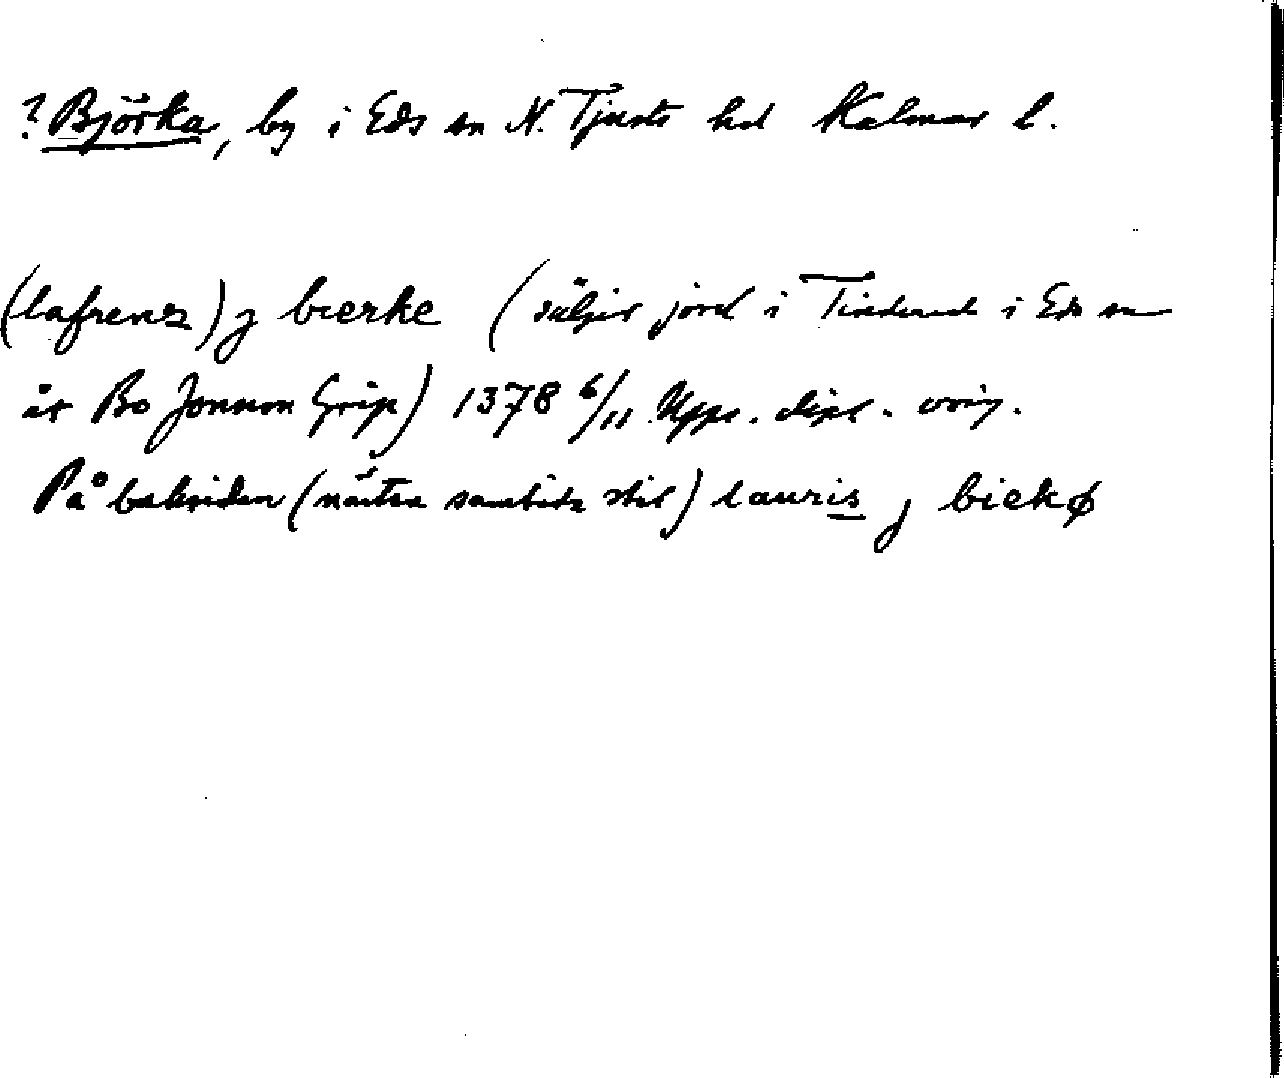 ? Björka, by i Eds sn N. Tjusts hd Kalmar l.
(lafrenz) j bierke (säljer jord i i Eds sn
åt Bo Jonsson Grip) 1378 6/11 Upps. dipl. orig.
På baksidan (nästan samtida stil) lauris j biekø